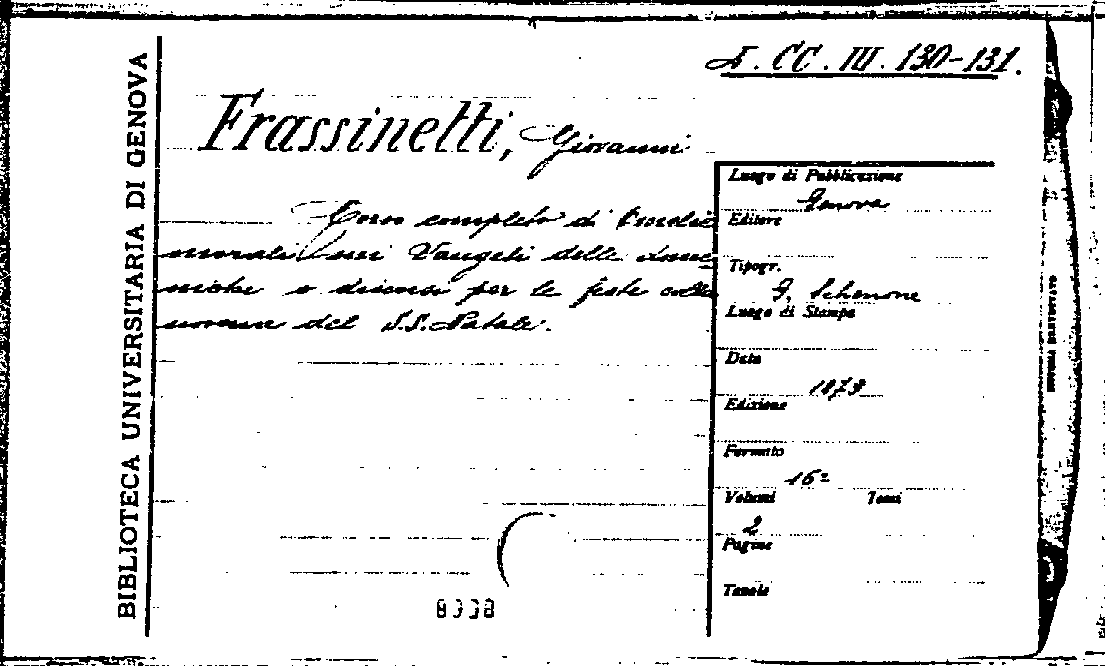 5. CC. III. 130-131.
BIBLIOTECA UNIVERSITARIA DI GENOVA
Frassinetti, Giovanni
Corso completo di Omelie
morali sui Vangeli delle dome-
niche e discorsi per le feste colla
novena del S.S. Natale.
Luogo di Pubblicazione
Genova
Editore
Tipogr.
F. Schenone
Luogo di Stampa
Data
1873
Edizione
Formato
16º
Volumi Tomi
2
Pagine
Tavole